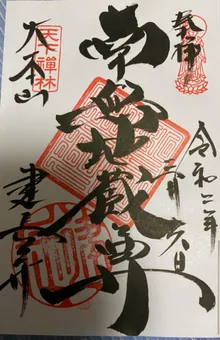 奉拝
令和二年
三月六日
南無地蔵尊
大本山
建長寺
天下禅林